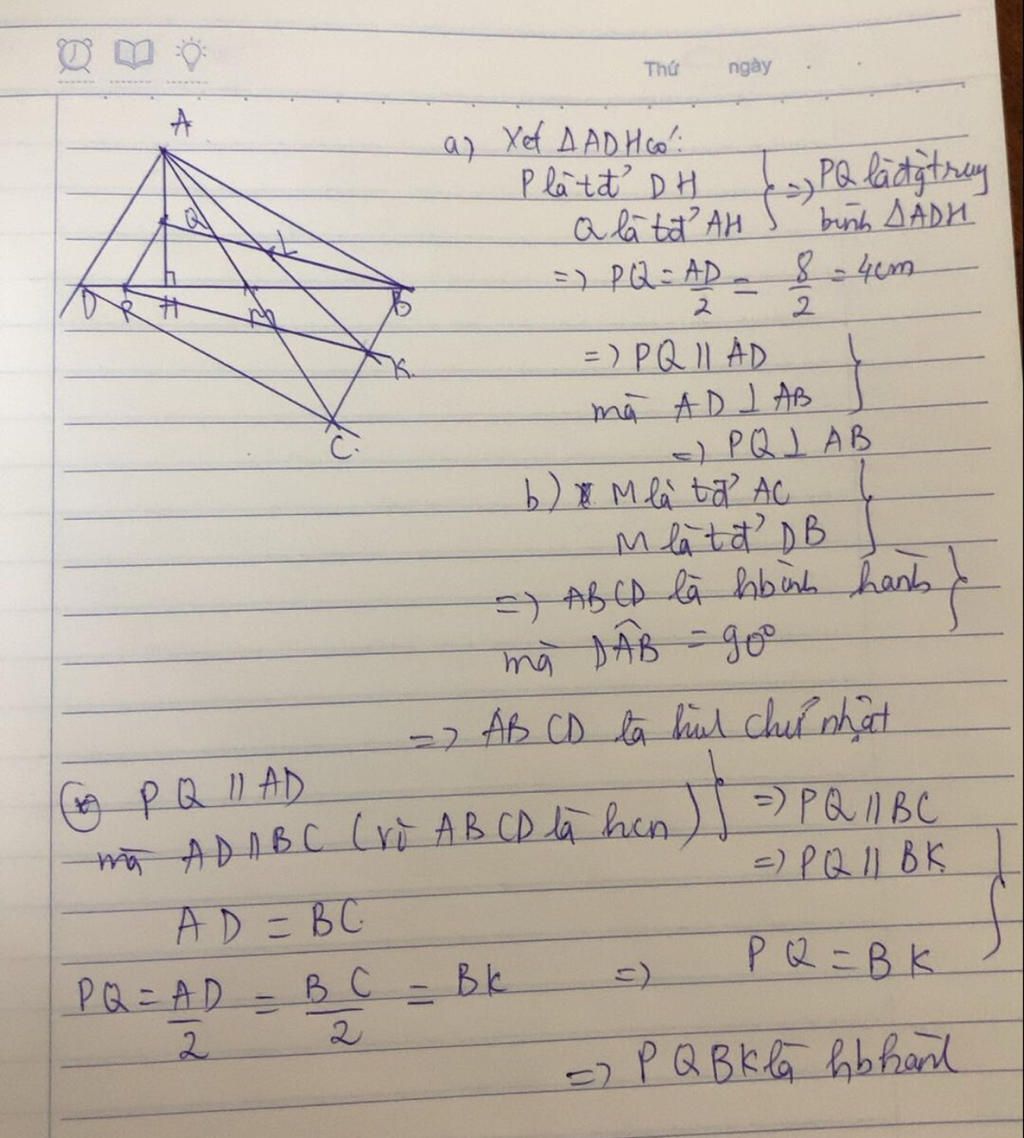 Thứ ngày
A
Q
L
D P H M B
K
C
a) Xét ΔADH có:
P là tđ' DH
Q là tđ' AH
=> PQ là đg truy
bình ΔADH
=> PQ = AD/2 = 8/2 = 4cm
=> PQ // AD
mà AD ⊥ AB
=> PQ ⊥ AB
b) M là tđ' AC
M là tđ' DB
=> ABCD là hbình hành
mà DÂB = 90°
=> ABCD là hìnl chữ nhật
PQ // AD
mà AD // BC (vì ABCD là hcn)
=> PQ // BC
=> PQ // BK
AD = BC
PQ = AD/2 = BC/2 = BK => PQ = BK
=> PQBK là hbhành